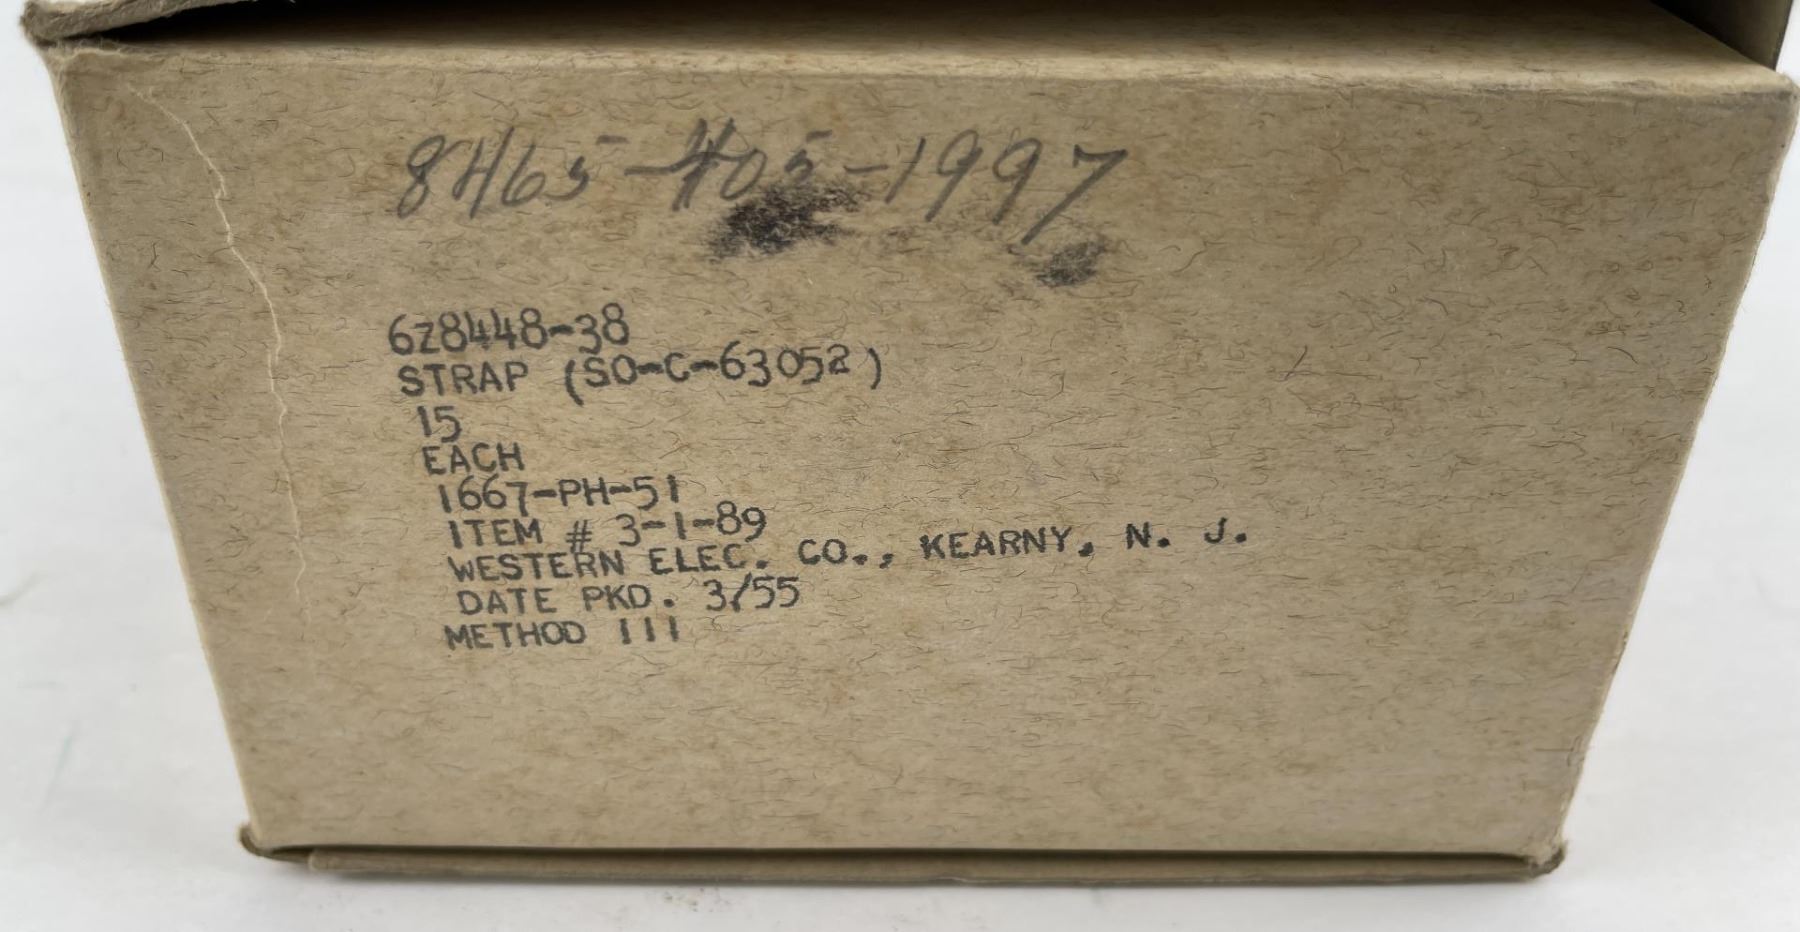 8465-405-1997
6Z8448-38
STRAP (SO-C-63052)
15
EACH
1667-PH-51
ITEM # 3-1-89
WESTERN ELEC. CO., KEARNY, N. J.
DATE PKD. 3/55
METHOD III